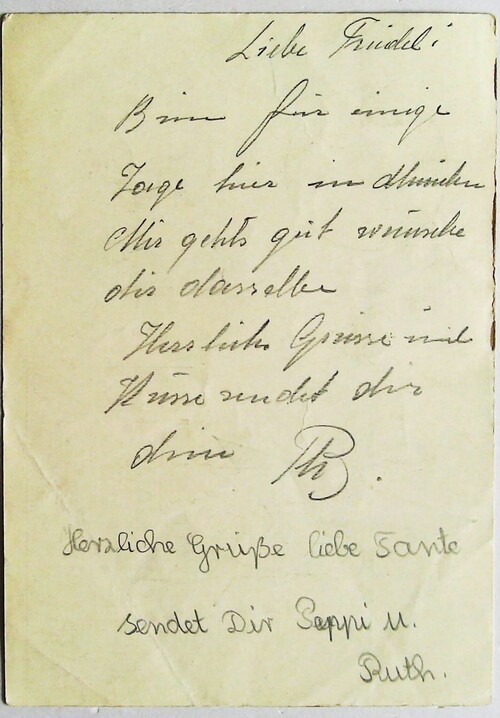 Liebe Friedel!
Bin für einige
Tage hier in München
Mir gehts gut wünsche
dir dasselbe
Herzliche Grüsse und
Küsse sendet dir
deine
Herzliche Grüße liebe Tante
sendet Dir Peppi u.
Ruth.